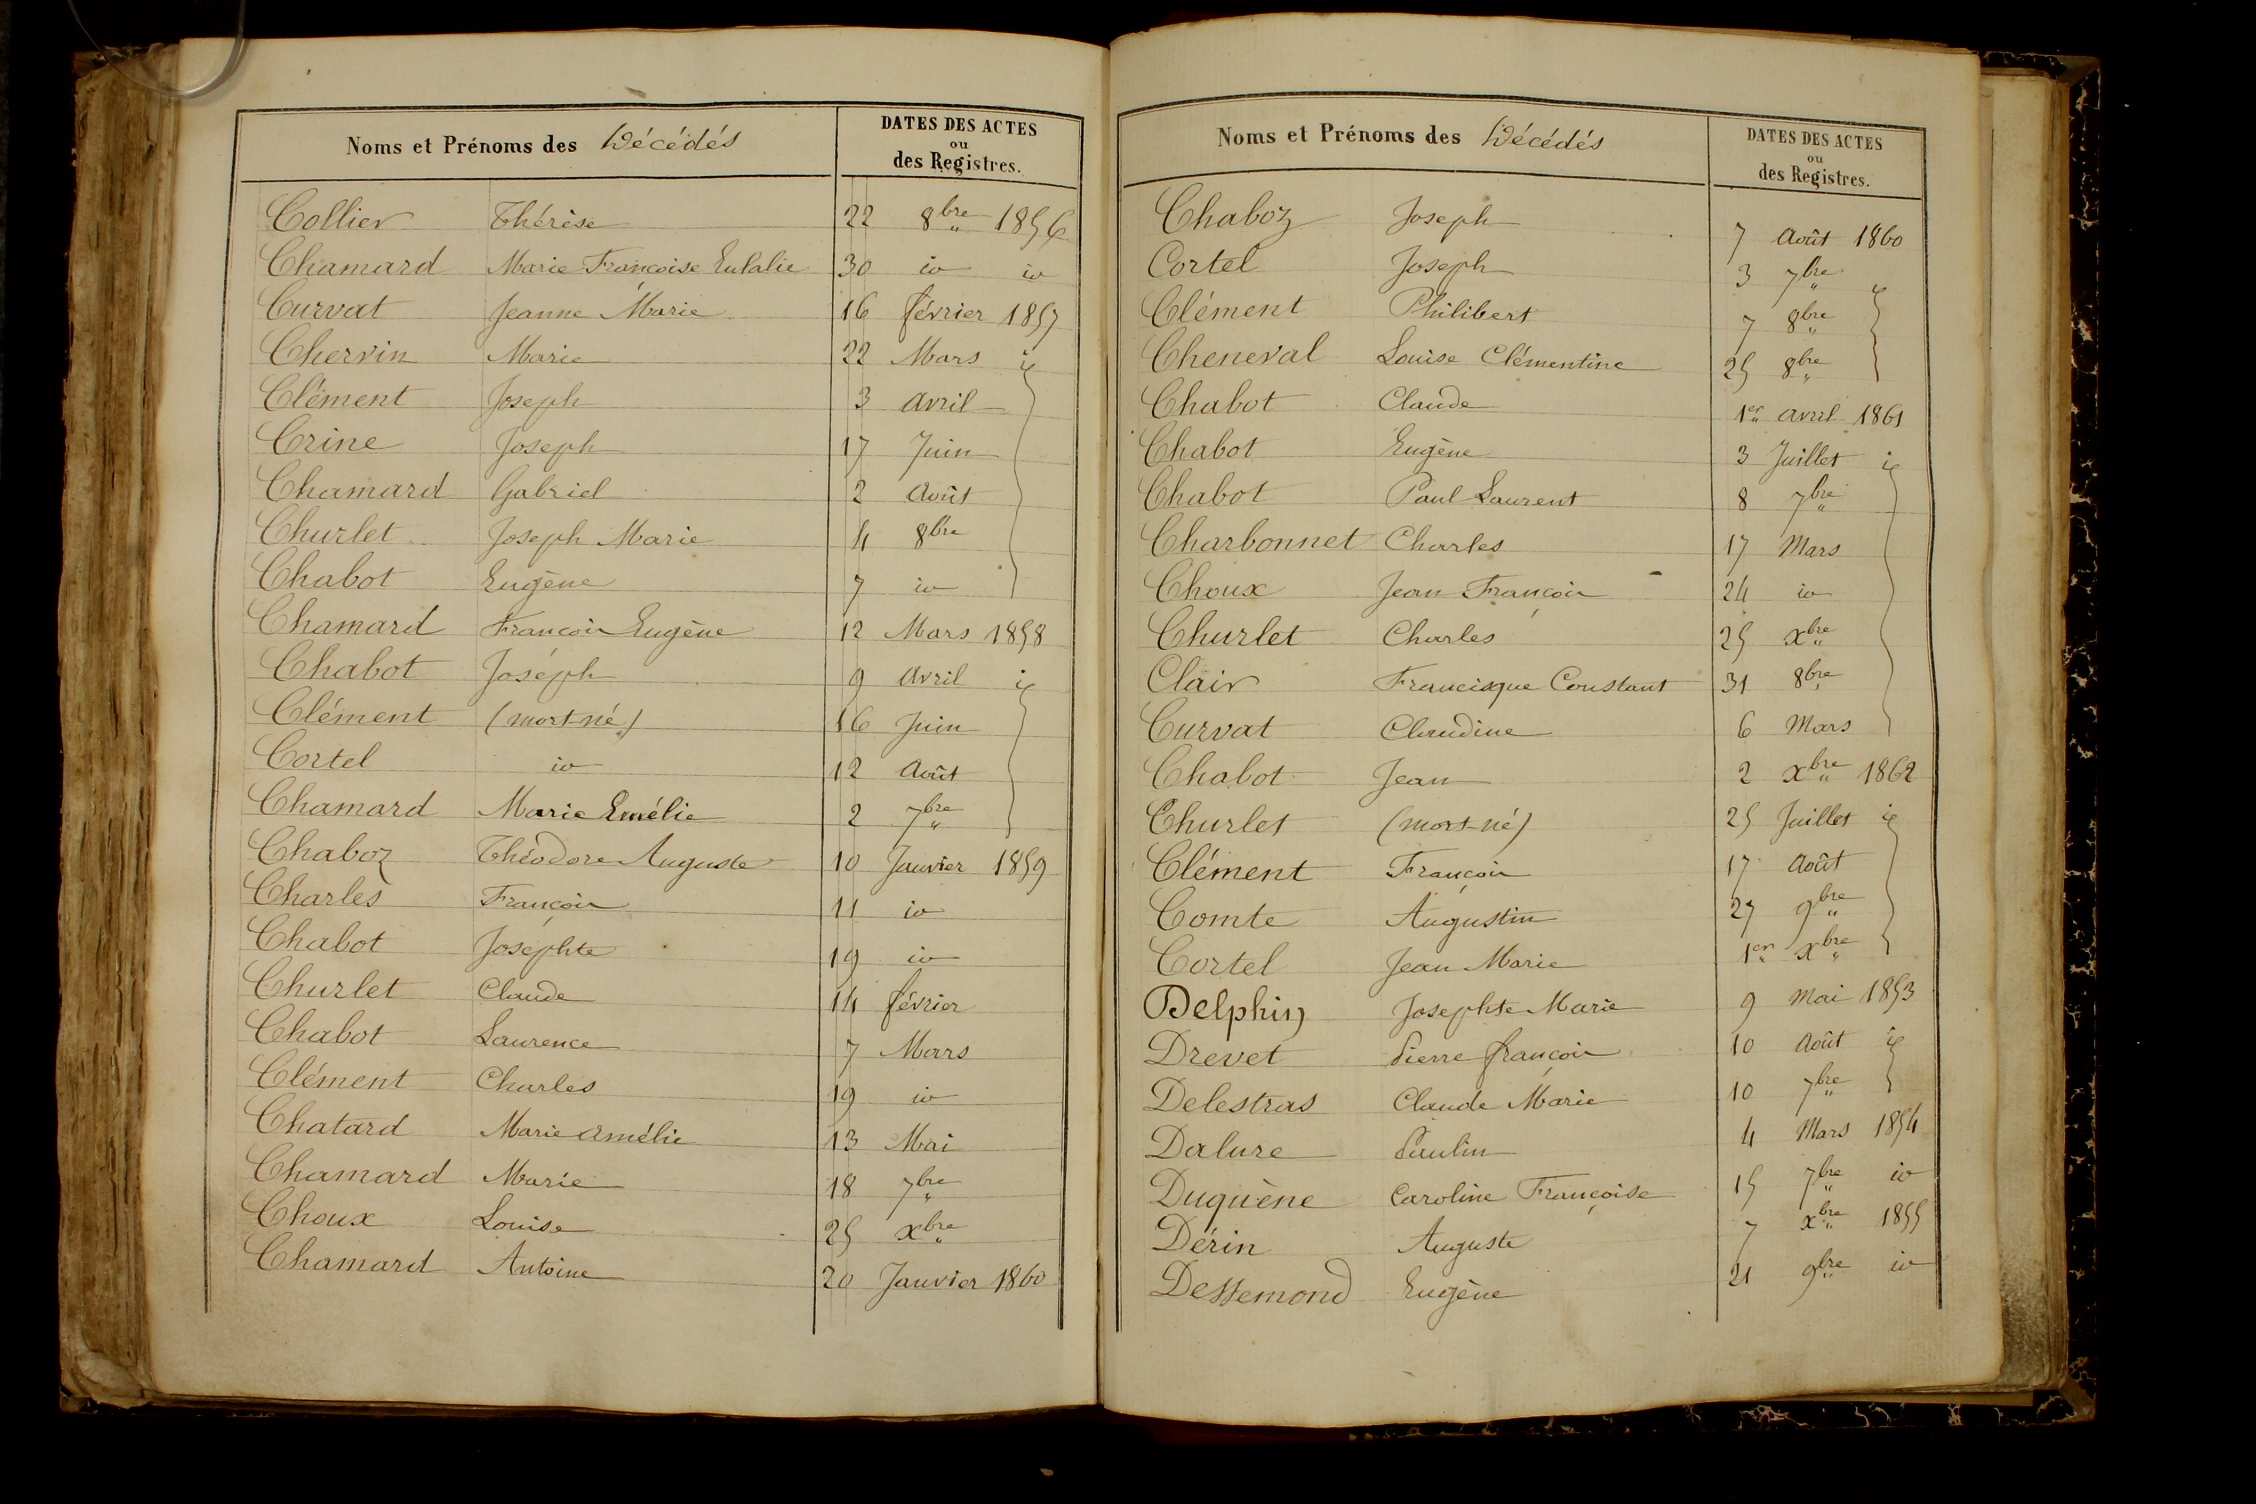 Noms et Prénoms des Décédés DATES DES ACTES
ou
des Registres.
Collier Thérèse 22 8bre 1856
Chamard Marie Françoise Eulalie 30 id id
Curvat Jeanne Marie 16 février 1857
Chervin Marie 22 Mars id
Clément Joseph 3 avril
Crine Joseph 17 Juin
Chamard Gabriel 2 Août
Churlet Joseph Marie 4 8bre
Chabot Eugène 7 id
Chamard François Eugène 12 Mars 1858
Chabot Joséph 9 avril id
Clément (mort-né) 16 Juin
Cortel id 12 Août
Chamard Marie Emélie 2 7bre
Chaboz Théodore Auguste 10 Janvier 1859
Charles François 11 id
Chabot Joséphte 19 id
Churlet Claude 14 février
Chabot Laurence 7 Mars
Clément Charles 19 id
Chatard Marie amélie 13 Mai
Chamard Marie 18 7bre
Choux Louise 25 xbre
Chamard Antoine 20 Janvier 1860
Noms et Prénoms des Décédés DATES DES ACTES
ou
des Registres.
Chaboz Joseph 7 Août 1860
Cortel Joseph 3 7bre id
Clément Philibert 7 8bre
Cheneval Louise Clémentine 25 8bre
Chabot Claude 1er avril 1861
Chabot Eugène 3 Juillet id
Chabot Paul Laurent 8 7bre
Charbonnet Charles 17 Mars
Choux Jean François 24 id
Churlet Charles 25 xbre
Clair Francisque Constant 31 8bre
Curvat Claudine 6 Mars
Chabot Jean 2 xbre 1862
Churlet (mort-né) 25 Juillet id
Clément François 17 Août
Comte Augustin 27 9bre
Cortel Jean Marie 1er xbre
Delphin Josephte Marie 9 Mai 1853
Drevet Pierre françois 10 Août id
Delestras Claude Marie 10 7bre
Dalure Paulin 4 Mars 1854
Duquène Caroline Françoise 15 7bre id
Dérin Auguste 7 xbre 1855
Dessemond Eugène 21 9bre id